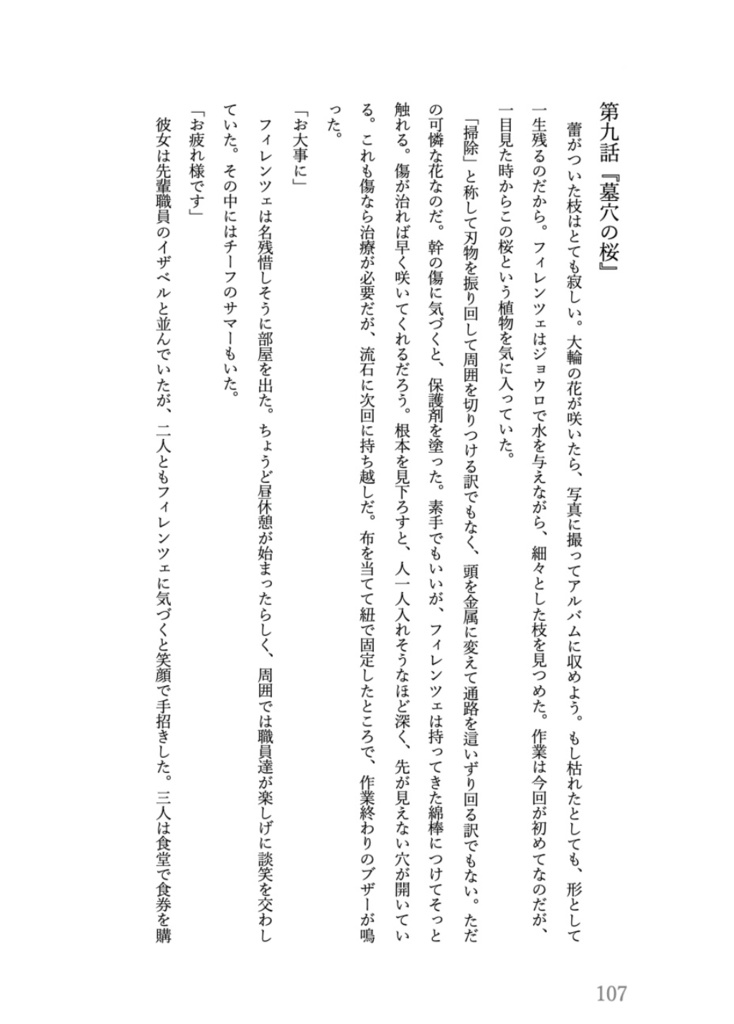 第九話『墓穴の桜』
　蕾がついた枝はとても寂しい。大輪の花が咲いたら、写真に撮ってアルバムに収めよう。もし枯れたとしても、形として
一生残るのだから。フィレンツェはジョウロで水を与えながら、細々とした枝を見つめた。作業は今回が初めてなのだが、
一目見た時からこの桜という植物を気に入っていた。
　「掃除」と称して刃物を振り回して周囲を切りつける訳でもなく、頭を金属に変えて通路を這いずり回る訳でもない。ただ
の可憐な花なのだ。幹の傷に気づくと、保護剤を塗った。素手でもいいが、フィレンツェは持ってきた綿棒につけてそっと
触れる。傷が治れば早く咲いてくれるだろう。根本を見下ろすと、人一人入れそうなほど深く、先が見えない穴が開いてい
る。これも傷なら治療が必要だが、流石に次回に持ち越しだ。布を当てて紐で固定したところで、作業終わりのブザーが鳴
った。
「お大事に」
　フィレンツェは名残惜しそうに部屋を出た。ちょうど昼休憩が始まったらしく、周囲では職員達が楽しげに談笑を交わし
ていた。その中にはチーフのサマーもいた。
「お疲れ様です」
　彼女は先輩職員のイザベルと並んでいたが、二人ともフィレンツェに気づくと笑顔で手招きした。三人は食堂で食券を購
107